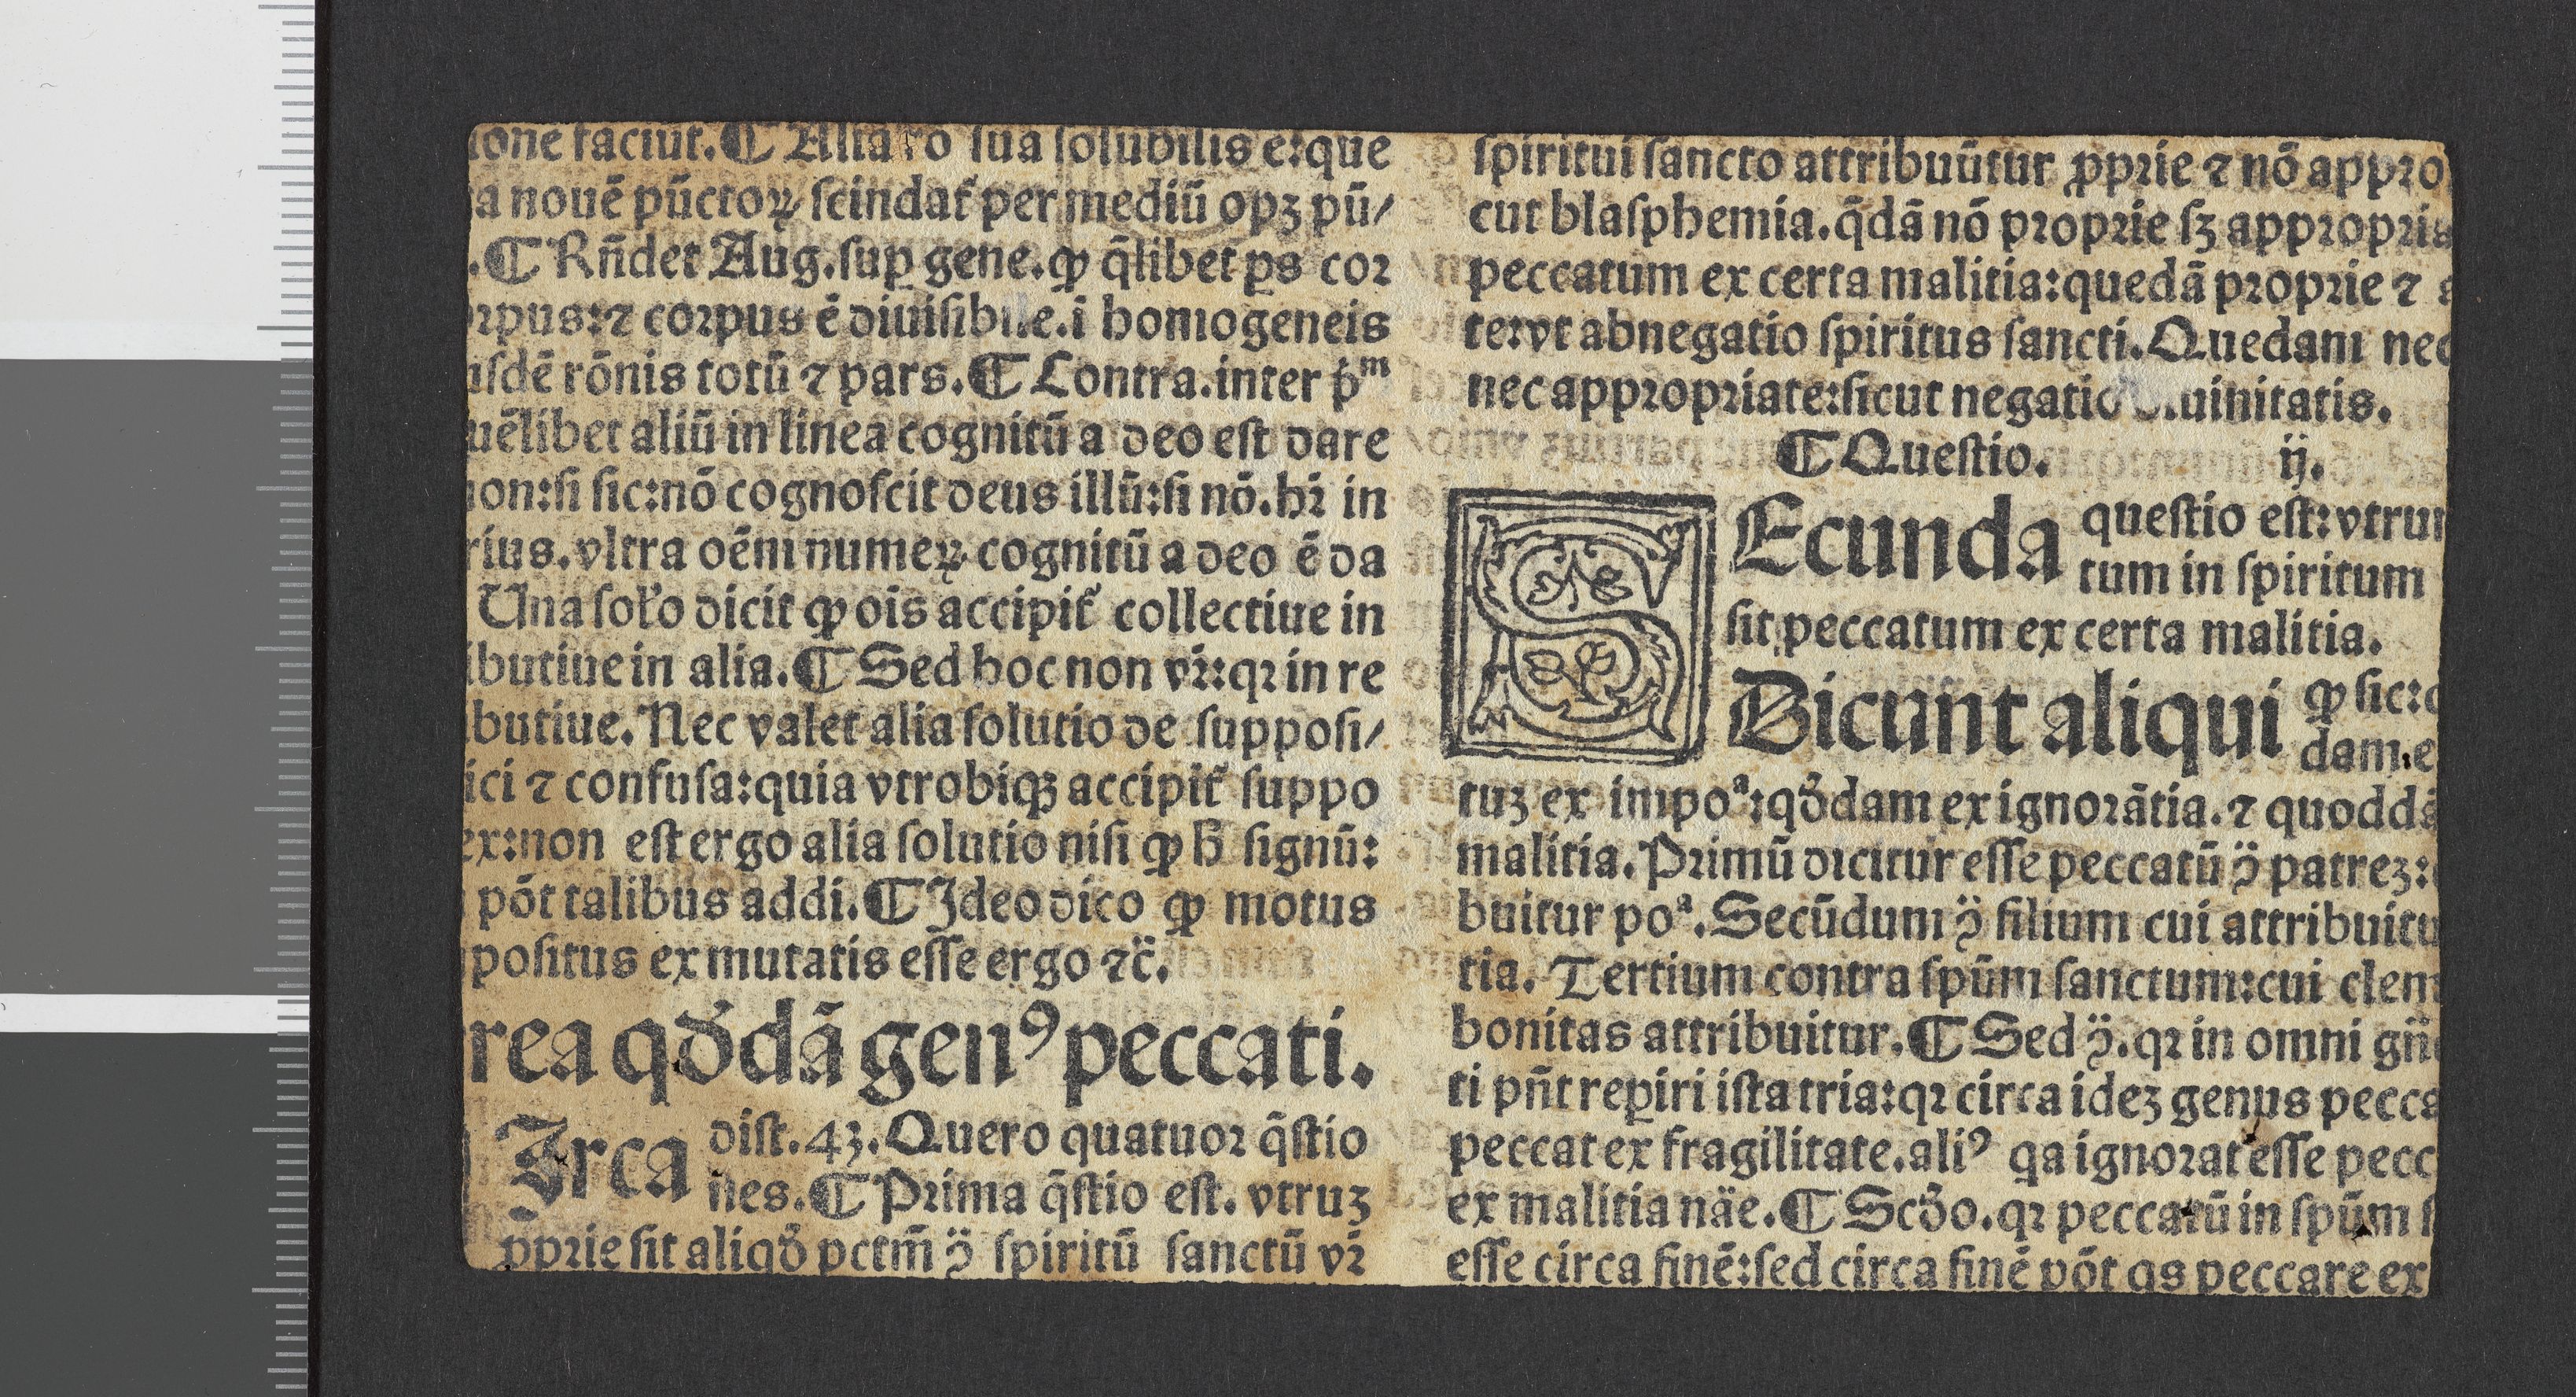 ione faciūt. ¶ Alia rō sua solubilis e: que
a nouē pūctoꝝ scindat᷑ per mediū opꝫ pū/
. ¶ Rn̄det Aug. sup gene. ꝙ q̄libet ꝑs cor
rpus: ⁊ corpus ē diuisibile. ī homogeneis
usdē rōnis totū ⁊ pars. ¶ Contra. inter pͫ
uēlibet aliū in linea cognitū a deo est dare
non: si sic: nō cognoscit deus illū: si nō. hr̄ in
rius. vltra oēm numeꝝ cognitū a deo ē da
Una solo dicit ꝙ ois accipit᷑ collectiue in
ibutiue in alia. ¶ Sed hoc non vr̄: qꝛ in re
butiue. Nec valet alia solutio de supposi/
ici ⁊ confusa: quia vtrobiqꝫ accipit᷑ suppo
ex: non est ergo alia solutio nisi ꝙ ħ signū:
pōt talibus addi. ¶ Ideo dico ꝙ motus
positus ex mutatis esse ergo ⁊c̄.
rea qd̄dā genꝰ peccati.
Irca dist. 43. Quero quatuor q̄stio
nes. ¶ Prima q̄stio est. vtruꝫ
ꝓprie sit aliqd̄ pctm̄ ↄ̈ spiritū sanctū vr̄
spiritui sancto attribuūtur ꝓprie ⁊ nō appro
cut blasphemia. q̄dā nō proprie sꝫ appropria
peccatum ex certa malitia: quedā proprie ⁊ a
te: vt abnegatio spiritus sancti. Quedam nec
nec appropriate: sicut negatio diuinitatis.
¶ Questio. ij.
SEcunda questio est: vtrum
tum in spiritum
sit peccatum ex certa malitia.
Dicunt aliqui ꝙ sic: q
dam. e
tuꝫ ex impoᵃ: qd̄dam ex ignorātia. ⁊ quoddā
malitia. Primū dicitur esse peccatū ↄ̈ patreꝫ:
buitur poᵃ. Secūdum ↄ̈ filium cui attribuitu
tia. Tertium contra spūm sanctum: cui clem
bonitas attribuitur. ¶ Sed ↄ̈. qꝛ in omni gn̄
ti pn̄t reꝑiri ista tria: qꝛ circa ideꝫ genus pecca
peccat ex fragilitate. aliꝰ qa ignorat esse pecc
ex malitia näe. ¶ Scd̄o. qꝛ peccatū in spūm s
esse circa finē: sed circa finē pōt qs peccare ex